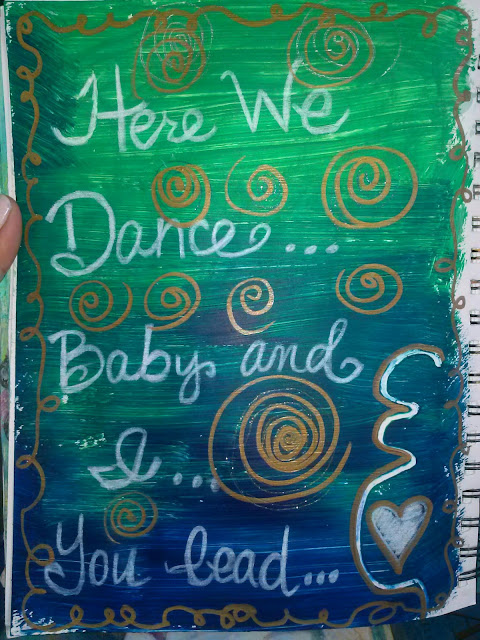 Here We
Dance...
Baby and
I...
You lead...